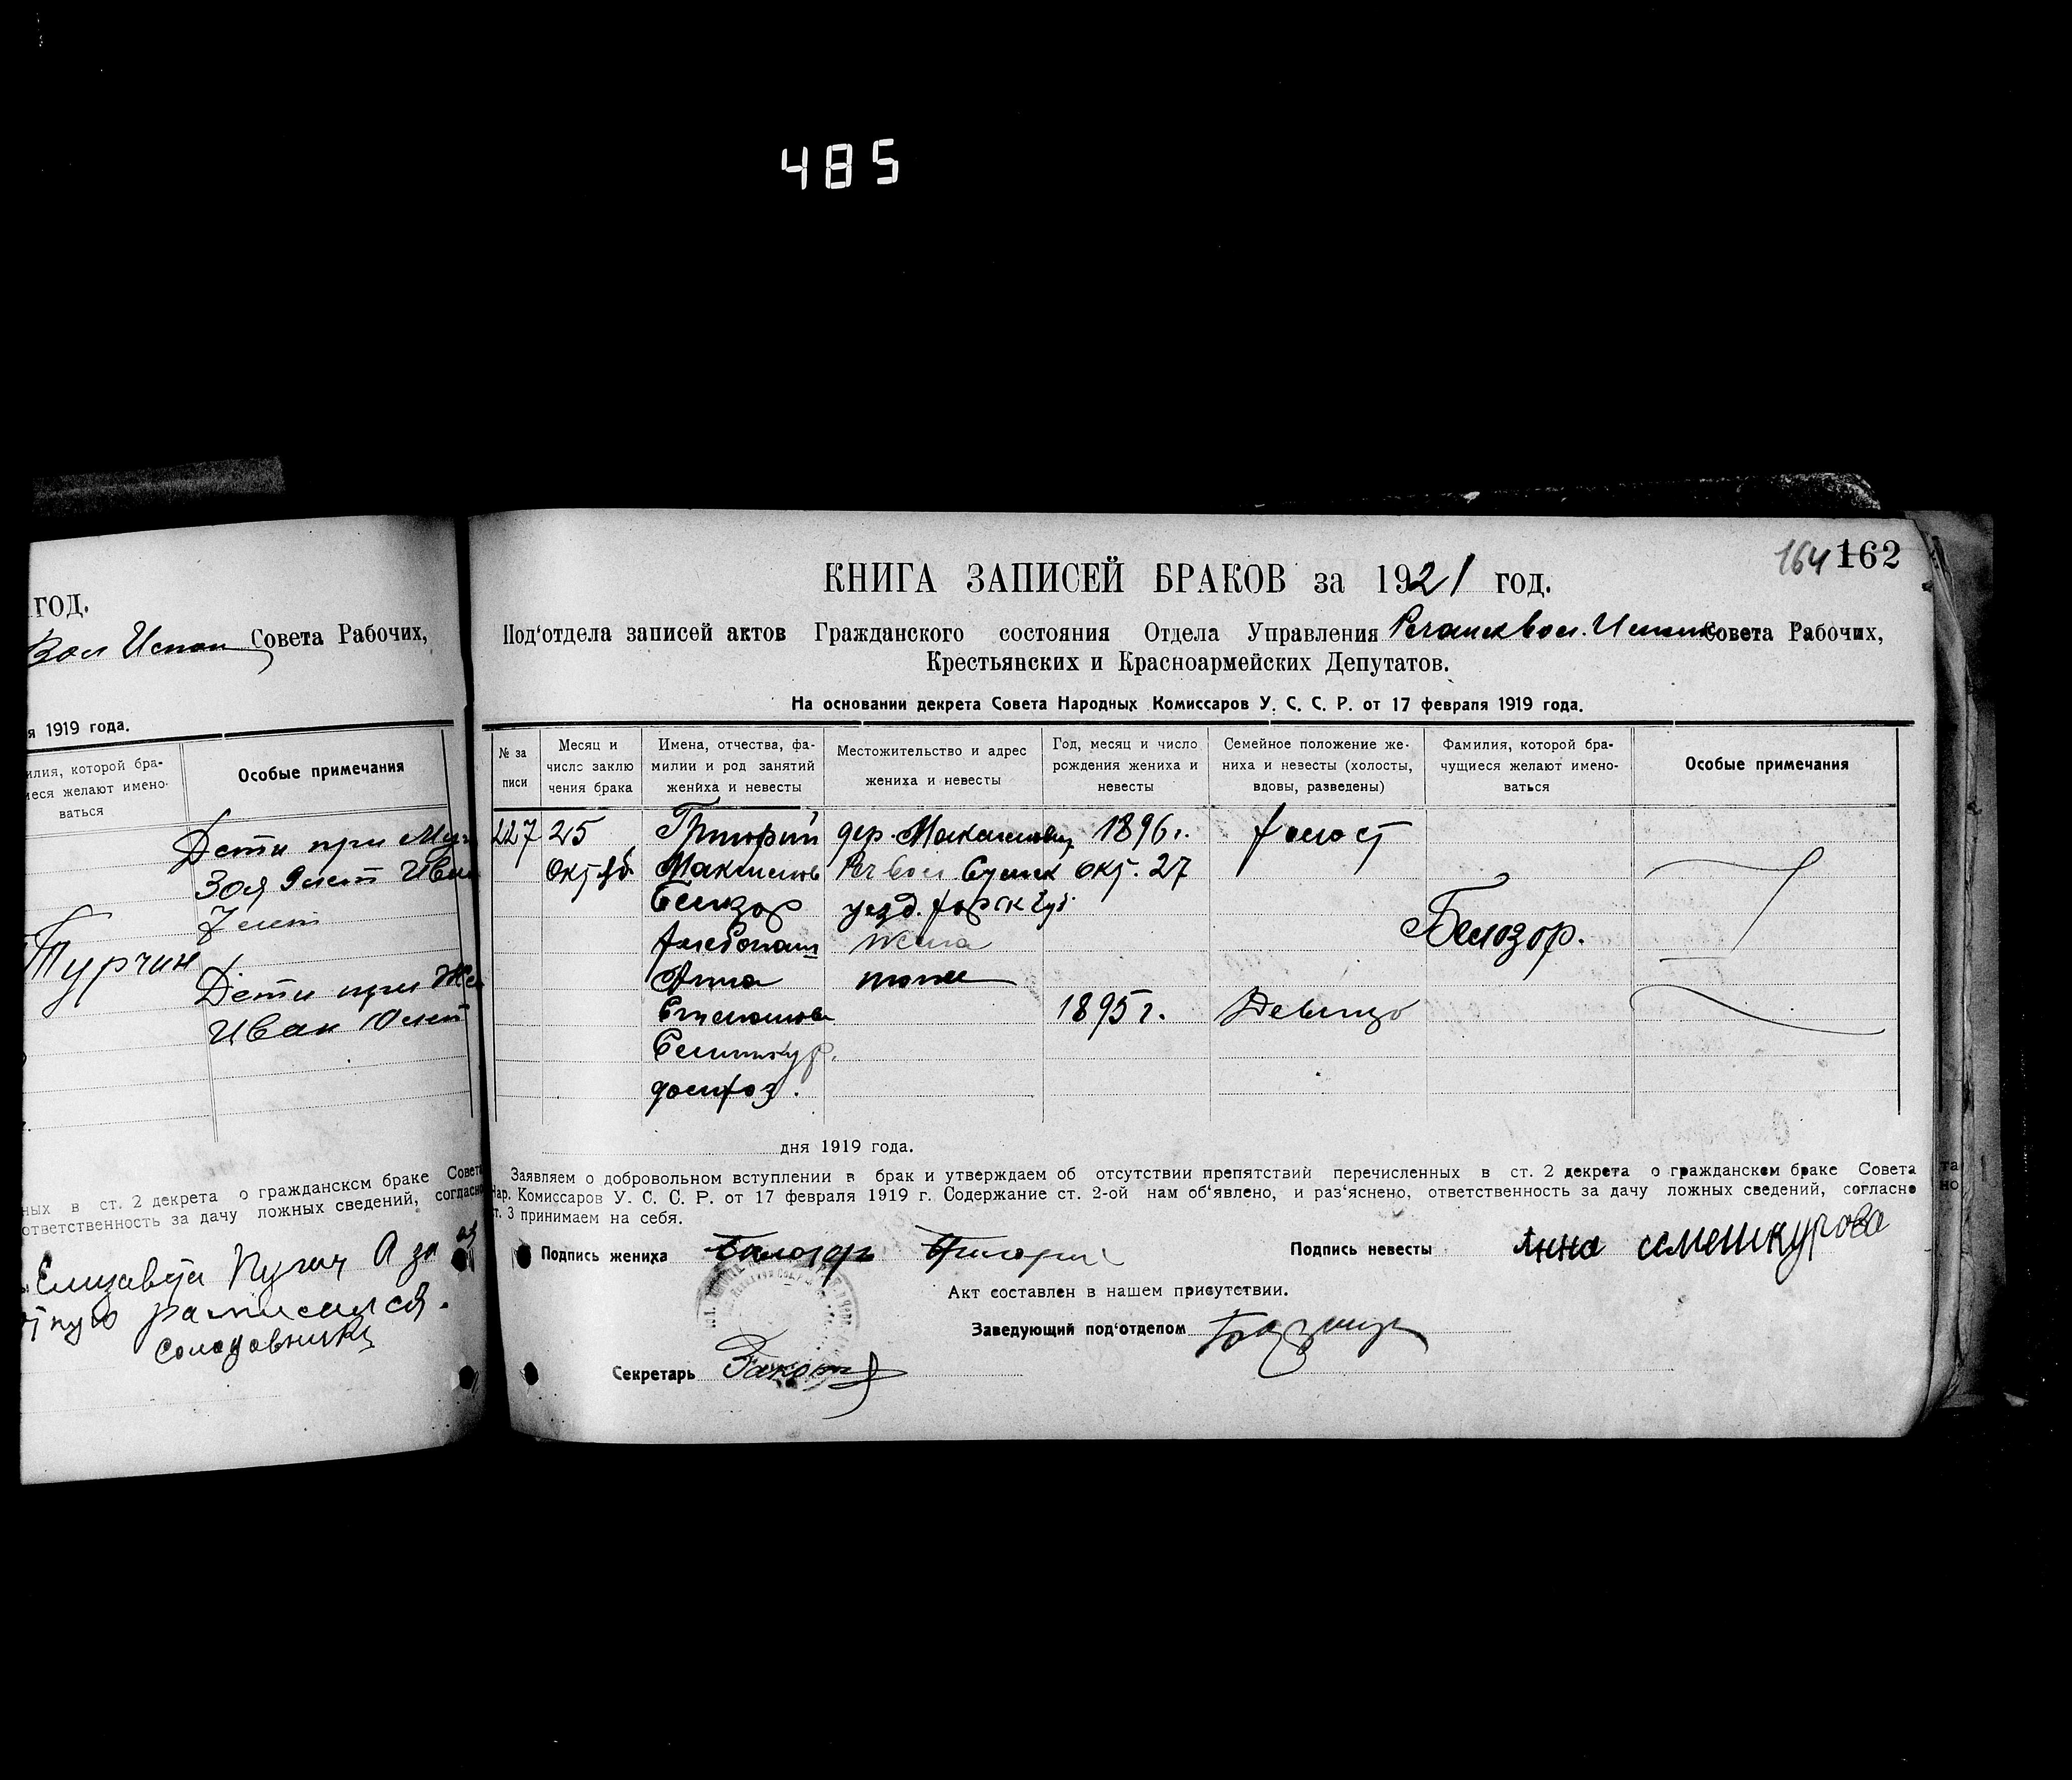 485
год.
Вол Испол Совета Рабочих,
я 1919 года.
илия, которой бра-
иеся желают имено-
ваться
Особые примечания
Дети при Муж
Зоя 9 лет Иван
7 лет
Турчин
Дети при Же
Иван 10 лет
ных в ст. 2 декрета о гражданском браке Совета
ответственность за дачу ложных сведений, согласно
Елизавета Пугач А за
расписался.
164 162
КНИГА ЗАПИСЕЙ БРАКОВ за 1921 год.
Под‘отдела записей актов Гражданского состояния Отдела Управления Совета Рабочих,
Крестьянских и Красноармейских Депутатов.
На основании декрета Совета Народных Комиссаров У. С. С. Р. от 17 февраля 1919 года.
№ за
писи
Месяц и
число заклю
чения брака
Имена, отчества, фа-
милии и род занятий
жениха и невесты
Местожительство и адрес
жениха и невесты
Год, месяц и число
рождения жениха и
невесты
Семейное положение же-
ниха и невесты (холосты,
вдовы, разведены)
Фамилия, которой бра-
чущиеся желают имено-
ваться
Особые примечания
227 25 Григорий дер. 1896 г. холост
Октяб. Максимов Окт. 27
Белозор уезд. Харьк губ.
хлебопаш жена
Белозор.
Анна тоже
Степанова 1895 г. Девица
домхоз.
дня 1919 года.
Заявляем о добровольном вступлении в брак и утверждаем об отсутствии препятствий перечисленных в ст. 2 декрета о гражданском браке Совета
Нар. Комиссаров У. С. С. Р. от 17 февраля 1919 г. Содержание ст. 2-ой нам об‘явлено, и раз‘яснено, ответственность за дачу ложных сведений, согласно
ст. 3 принимаем на себя.
Подпись жениха Подпись невесты Анна семешкурова
Акт составлен в нашем присутствии.
Заведующий под‘отделом
Секретарь